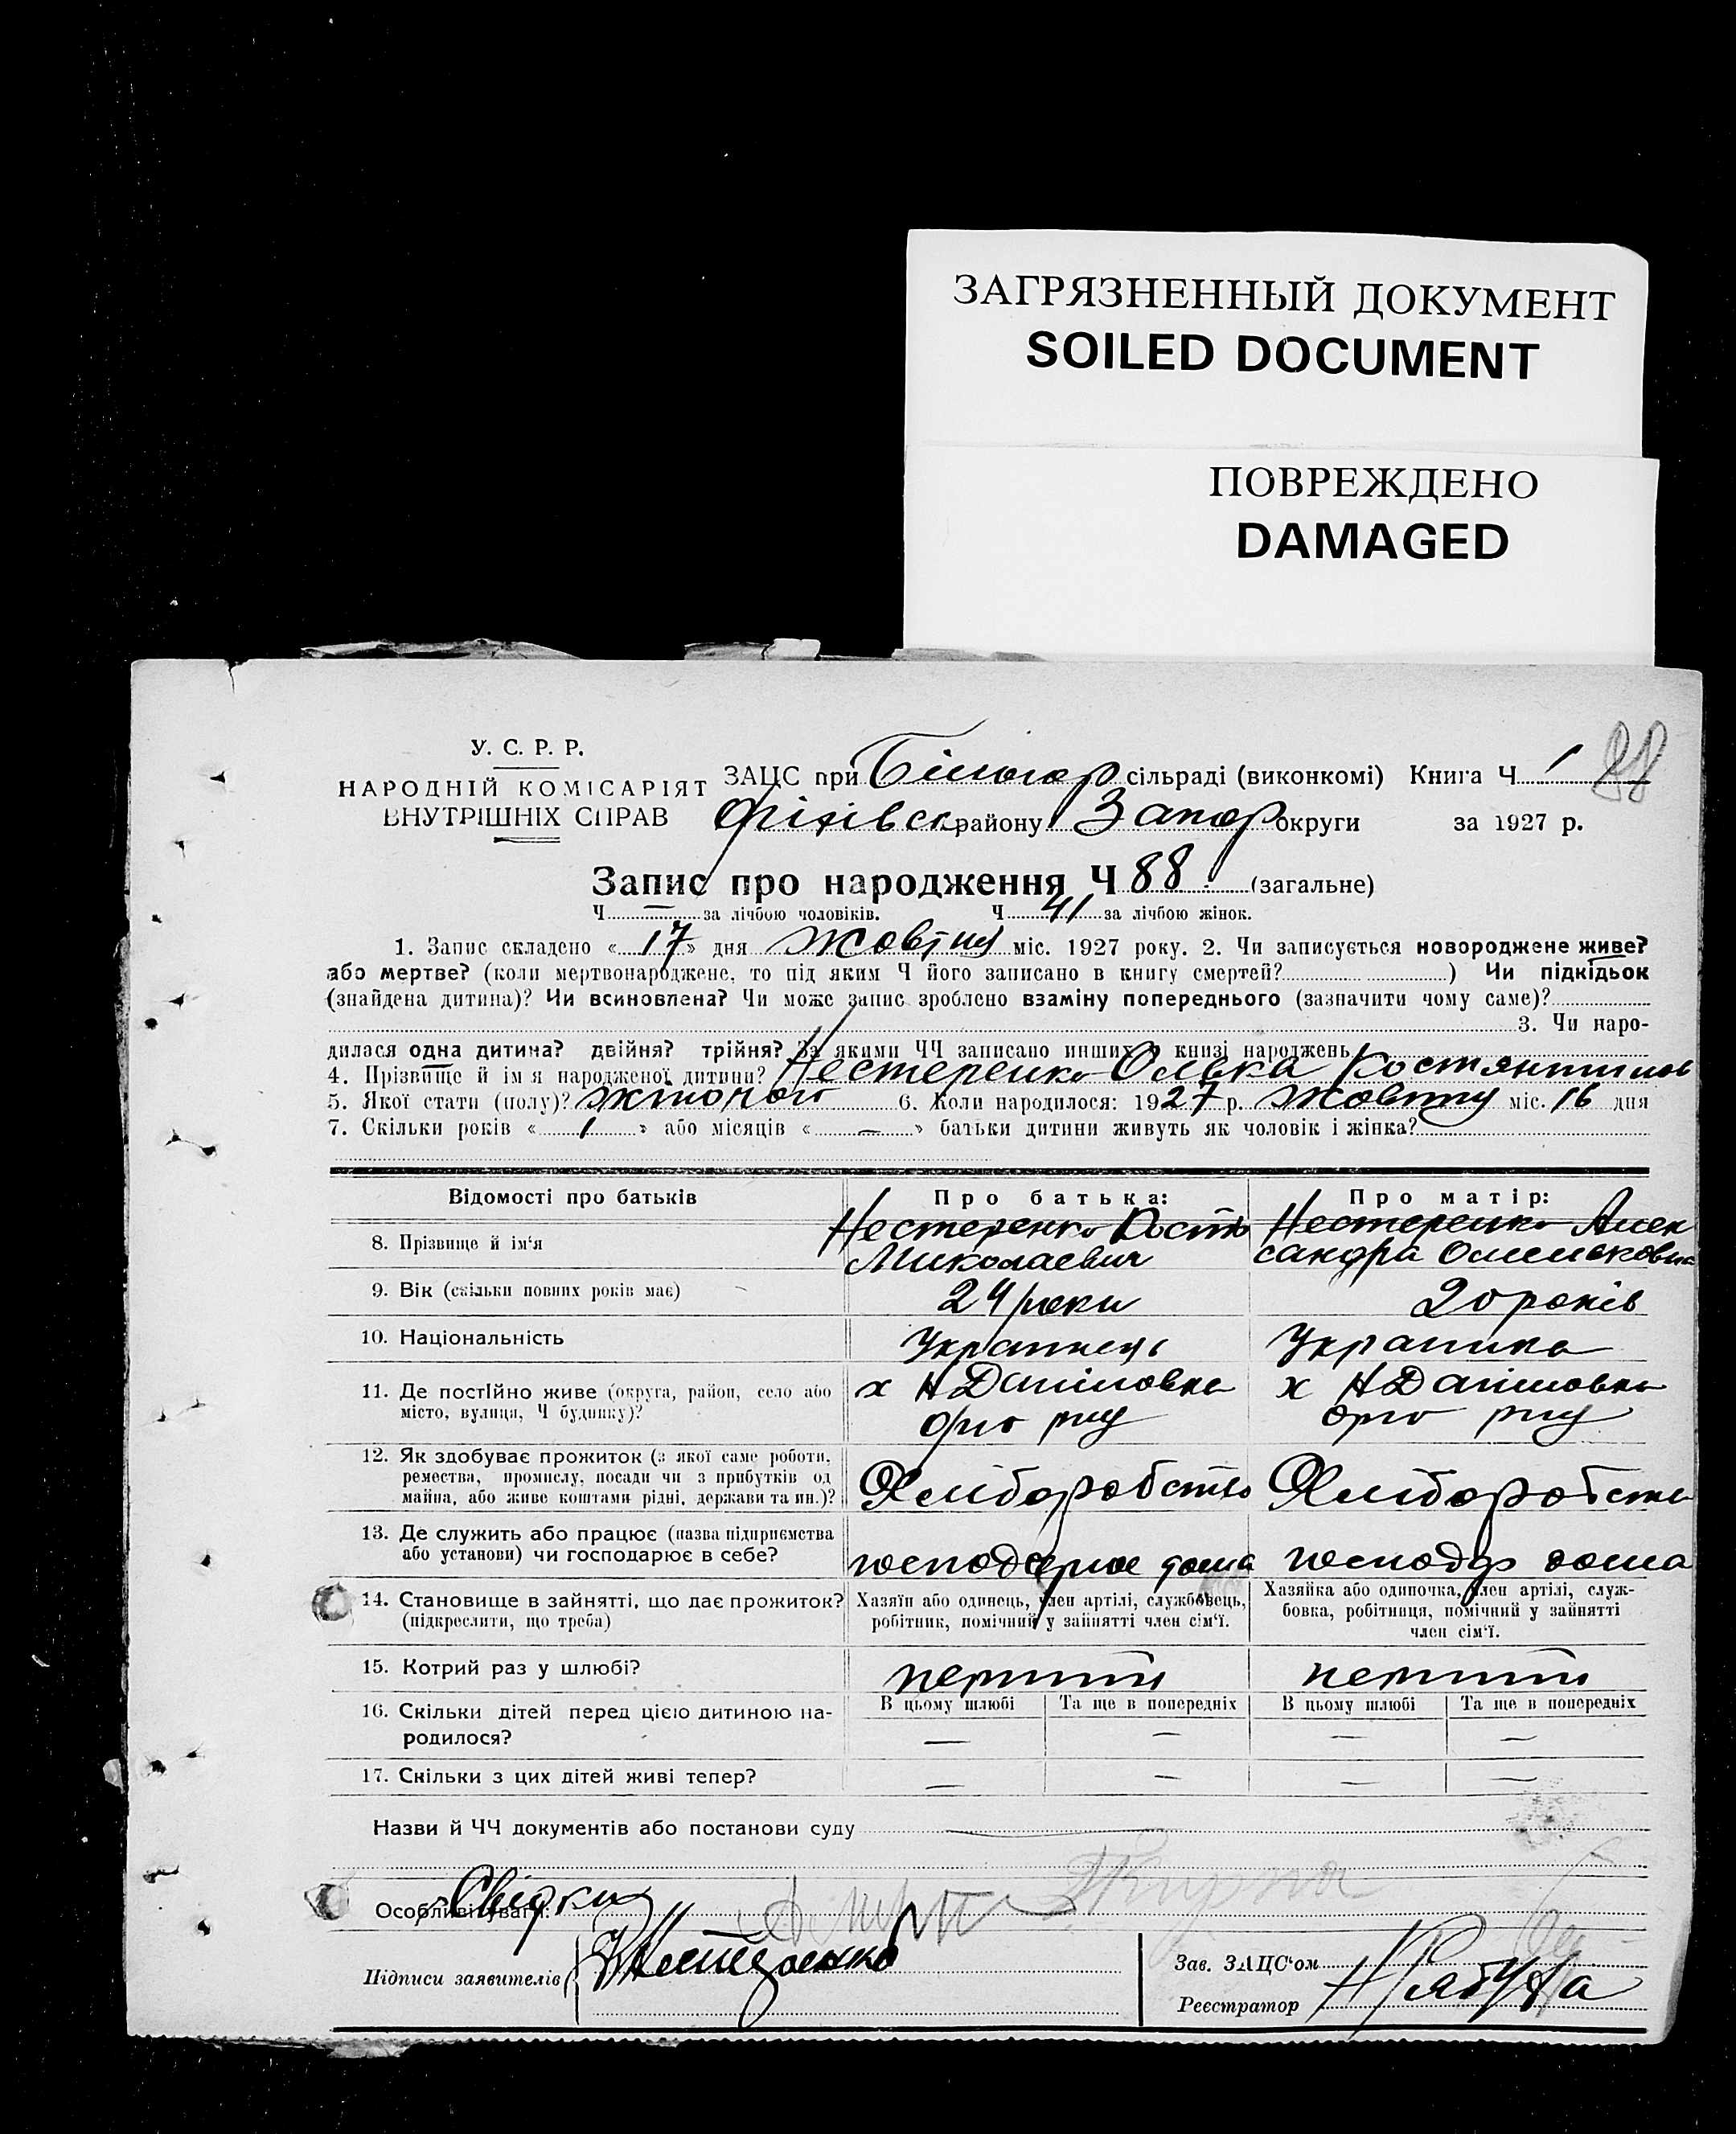 ЗАГРЯЗНЕННЫЙ ДОКУМЕНТ
SOILED DOCUMENT
ПОВРЕЖДЕНО
DAMAGED
У. С. Р. Р.
НАРОДНІЙ КОМІСАРІЯТ
ВНУТРІШНІХ СПРАВ
ЗАЦС при Білогор сільраді (виконкомі) Книга Ч 1
88
Оріхівськ району Запор округи за 1927 р.
Запис про народження Ч 88. (загальне)
Ч — за лічбою чоловіків. Ч 41 за лічбою жінок.
1. Запис складено «17» дня жовтня міс. 1927 року. 2. Чи записується новороджене живе?
або мертве? (коли мертвонароджене, то під яким Ч його записано в книгу смертей? ) Чи підкідьок
(знайдена дитина)? Чи всиновлена? Чи може запис зроблено взаміну попереднього (зазначити чому саме)?
3. Чи наро-
дилася одна дитина? двійня? трійня? За якими ЧЧ записано инших в книзі народжень
4. Прізвище й ім'я народженої дитини? Нестеренко Ольга Костянтинов
5. Якої стати (полу)? жіночого 6. Коли народилося: 1927 р. жовтня міс. 16 дня
7. Скільки років «1» або місяців «—» батьки дитини живуть як чоловік і жінка?
Відомості про батьків Про батька: Про матір:
8. Прізвище й ім'я Нестеренко Кость Нестеренко Алек
Миколаевич сандра Омельковна
9. Вік (скільки повних років має) 24 роки 20 років
10. Національність Українець Українка
11. Де постійно живе (округа, район, село або х Н Даніловка х Н Даніловка
місто, вулиця, Ч будинку)?
12. Як здобуває прожиток (з якої саме роботи,
ремества, промислу, посади чи з прибутків од
майна, або живе коштами рідні, держави та ин.)? Хліборобство Хліборобство
13. Де служить або працює (назва підприємства
або установи) чи господарює в себе? господарює дома господар дома
14. Становище в зайнятті, що дає прожиток? Хазяїн або одинець, член артілі, службовець, Хазяйка або одиночка, член артілі, служ-
(підкреслити, що треба) робітник, помічний у зайнятті член сім'ї. бовка, робітниця, помічний у зайнятті
член сім'ї.
15. Котрий раз у шлюбі? перший перший
В цьому шлюбі Та ще в попередніх В цьому шлюбі Та ще в попередніх
16. Скільки дітей перед цією дитиною на-
родилося? — — — —
17. Скільки з цих дітей живі тепер? — — — —
Назви й ЧЧ документів або постанови суду —
Особливі уваги: Свідки
Підписи заявителів К Нестеренко
Зав. ЗАЦС'ом
Реєстратор Н Рябуха